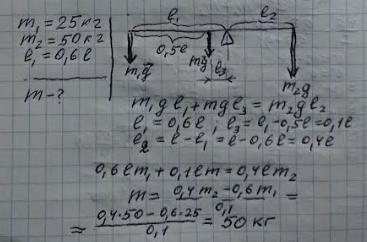 m₁ = 25кг
m₂ = 50кг
l₁ = 0,6l
m - ?
l₁ l₂
0,5l
m₁g⃗ mg⃗ l₃
m₂g⃗
m₁gl₁ + mgl₃ = m₂gl₂
l₁ = 0,6l ; l₃ = l₁ - 0,5l = 0,1l
l₂ = l - l₁ = l - 0,6l = 0,4l
0,6lm₁ + 0,1lm = 0,4lm₂
m = (0,4m₂ - 0,6m₁)/0,1 =
= (0,4·50 - 0,6·25)/0,1 = 50 кг